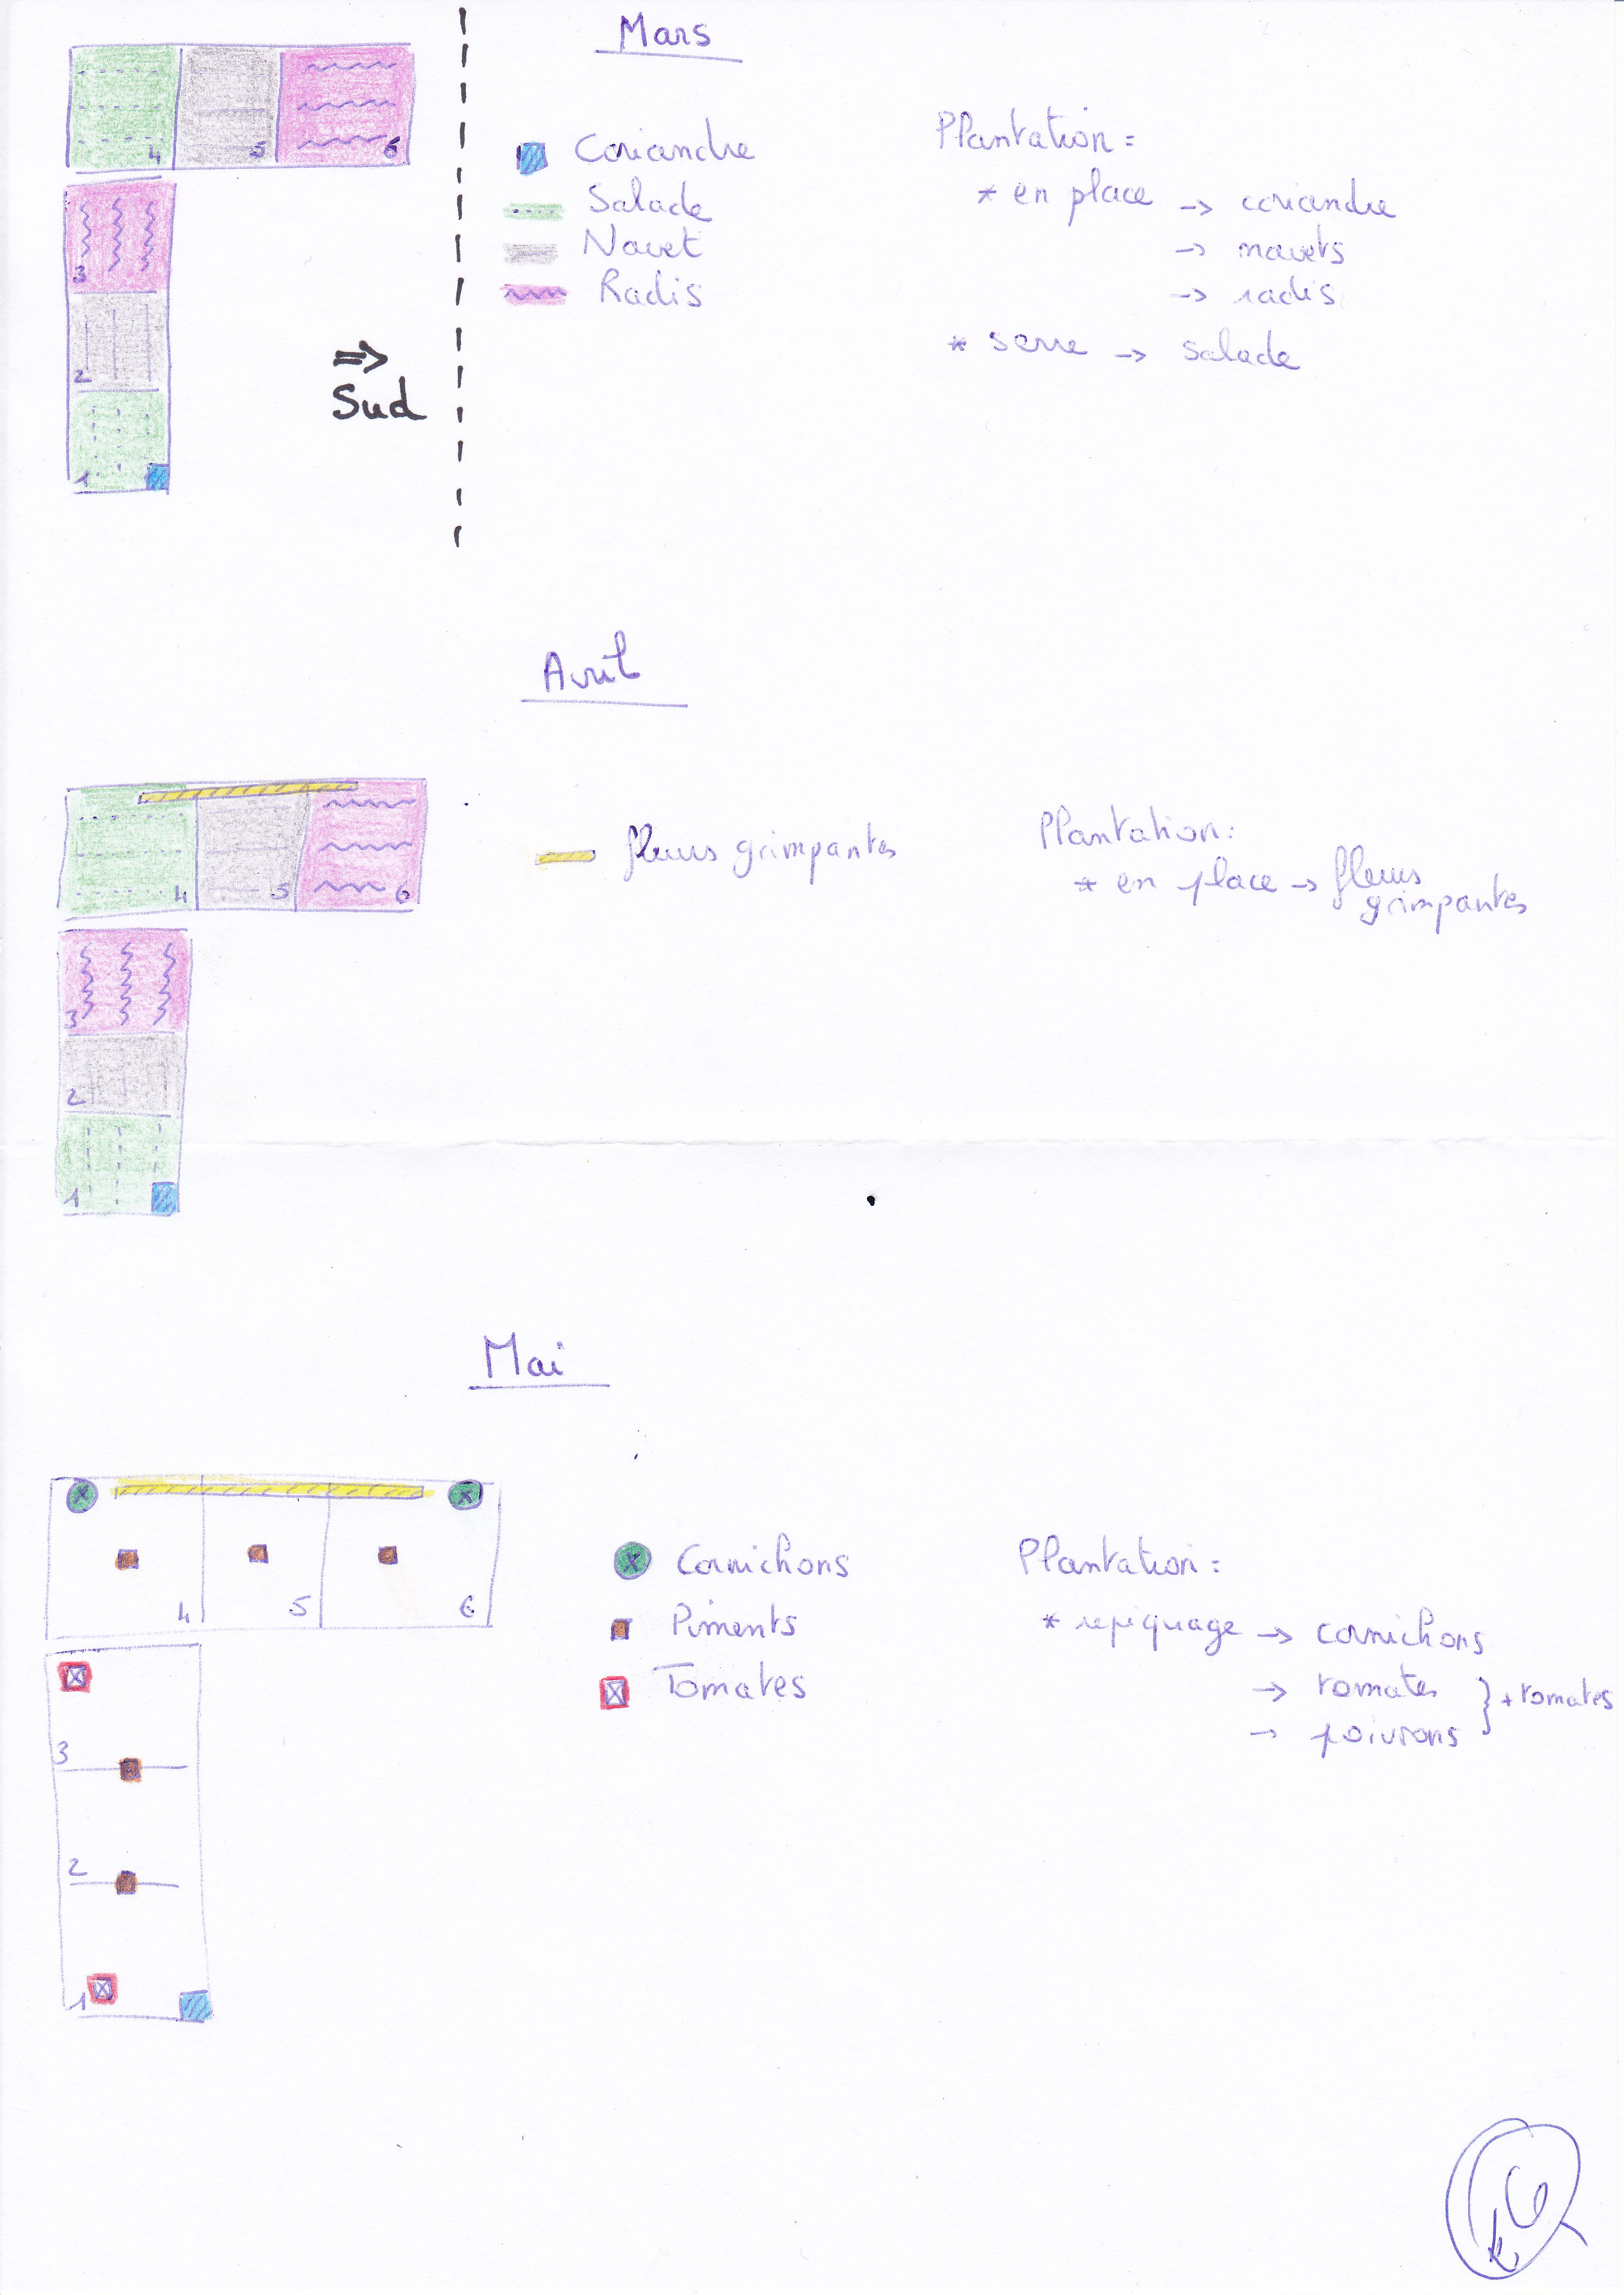 Mars
4 5 6
3
2
1
⇒
Sud
Coriandre
Salade
Navet
Radis
Plantation =
* en place -> coriandre
-> navets
-> radis
* serre -> salade
Avril
4 5 6
3
2
1
fleurs grimpantes
Plantation:
* en place -> fleurs
grimpantes
Mai
4 5 6
3
2
1
Cornichons
Piments
Tomates
Plantation =
* repiquage -> cornichons
-> tomates } + tomates
-> poivrons